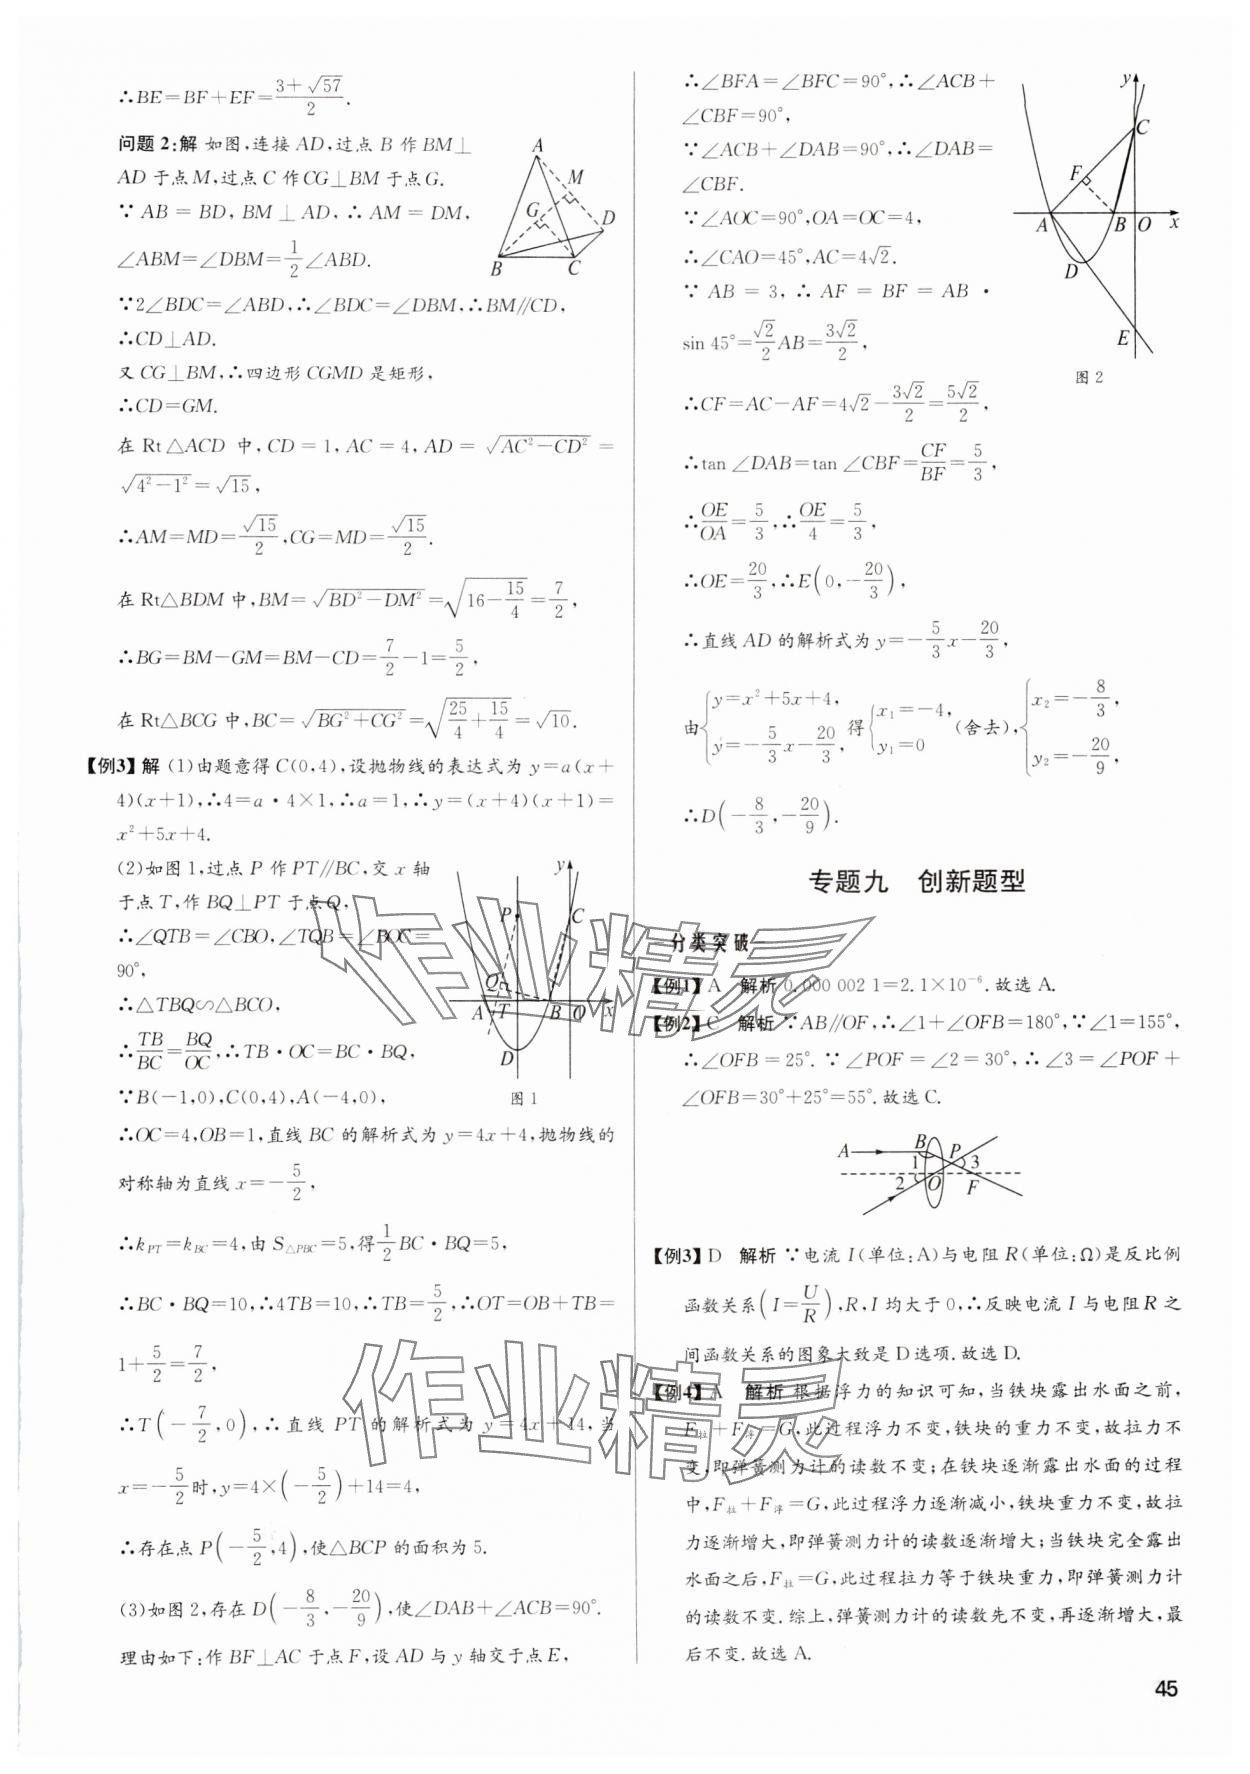 ∴BE=BF+EF=(3+√57)/2.
问题2:解 如图,连接AD,过点B作BM⊥
AD于点M,过点C作CG⊥BM于点G.
∵AB=BD,BM⊥AD,∴AM=DM,
∠ABM=∠DBM=1/2∠ABD.
∵2∠BDC=∠ABD,∴∠BDC=∠DBM,∴BM//CD,
∴CD⊥AD.
又CG⊥BM,∴四边形CGMD是矩形,
∴CD=GM.
在Rt△ACD中,CD=1,AC=4,AD=√(AC²-CD²)=
√(4²-1²)=√15,
∴AM=MD=√15/2,CG=MD=√15/2.
在Rt△BDM中,BM=√(BD²-DM²)=√(16-15/4)=7/2,
∴BG=BM-GM=BM-CD=7/2-1=5/2,
在Rt△BCG中,BC=√(BG²+CG²)=√(25/4+15/4)=√10.
A
M
G
D
B
C
【例3】解 (1)由题意得C(0,4),设抛物线的表达式为y=a(x+
4)(x+1),∴4=a·4×1,∴a=1,∴y=(x+4)(x+1)=
x²+5x+4.
(2)如图1,过点P作PT//BC,交x轴
于点T,作BQ⊥PT于点Q,
∴∠QTB=∠CBO,∠TQB=∠BOC=
90°,
∴△TBQ∽△BCO,
∴TB/BC=BQ/OC,∴TB·OC=BC·BQ,
∵B(-1,0),C(0,4),A(-4,0),
y
P
C
Q
A T B O x
D
图1
∴OC=4,OB=1,直线BC的解析式为y=4x+4,抛物线的
对称轴为直线x=-5/2,
∴k_PT=k_BC=4,由S△PBC=5,得1/2BC·BQ=5,
∴BC·BQ=10,∴4TB=10,∴TB=5/2,∴OT=OB+TB=
1+5/2=7/2,
∴T(-7/2,0),∴直线PT的解析式为y=4x+14,当
x=-5/2时,y=4×(-5/2)+14=4,
∴存在点P(-5/2,4),使△BCP的面积为5.
(3)如图2,存在D(-8/3,-20/9),使∠DAB+∠ACB=90°.
理由如下:作BF⊥AC于点F,设AD与y轴交于点E,
∴∠BFA=∠BFC=90°,∴∠ACB+
∠CBF=90°,
∵∠ACB+∠DAB=90°,∴∠DAB=
∠CBF.
∵∠AOC=90°,OA=OC=4,
∴∠CAO=45°,AC=4√2.
∵AB=3,∴AF=BF=AB·
sin 45°=√2/2AB=3√2/2,
y
C
F
A B O x
D
E
图2
∴CF=AC-AF=4√2-3√2/2=5√2/2,
∴tan∠DAB=tan∠CBF=CF/BF=5/3,
∴OE/OA=5/3,∴OE/4=5/3,
∴OE=20/3,∴E(0,-20/3),
∴直线AD的解析式为y=-5/3x-20/3,
由{y=x²+5x+4, y=-5/3x-20/3,得{x₁=-4, y₁=0(舍去),{x₂=-8/3, y₂=-20/9,
∴D(-8/3,-20/9).
专题九 创新题型
分类突破
【例1】A 解析 0.000 002 1=2.1×10⁻⁶.故选A.
【例2】C 解析 ∵AB//OF,∴∠1+∠OFB=180°,∵∠1=155°,
∴∠OFB=25°.∵∠POF=∠2=30°,∴∠3=∠POF+
∠OFB=30°+25°=55°.故选C.
A
B
P
1
3
2
O
F
【例3】D 解析 ∵电流I(单位:A)与电阻R(单位:Ω)是反比例
函数关系(I=U/R),R,I均大于0,∴反映电流I与电阻R之
间函数关系的图象大致是D选项.故选D.
【例4】A 解析 根据浮力的知识可知,当铁块露出水面之前,
F拉+F浮=G,此过程浮力不变,铁块的重力不变,故拉力不
变,即弹簧测力计的读数不变;在铁块逐渐露出水面的过程
中,F拉+F浮=G,此过程浮力逐渐减小,铁块重力不变,故拉
力逐渐增大,即弹簧测力计的读数逐渐增大;当铁块完全露出
水面之后,F拉=G,此过程拉力等于铁块重力,即弹簧测力计
的读数不变.综上,弹簧测力计的读数先不变,再逐渐增大,最
后不变.故选A.
作业精灵
作业精灵
45